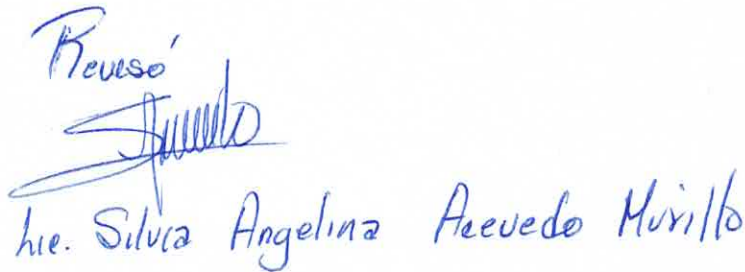 Revisó
Lic. Silvia Angelina Acevedo Murillo